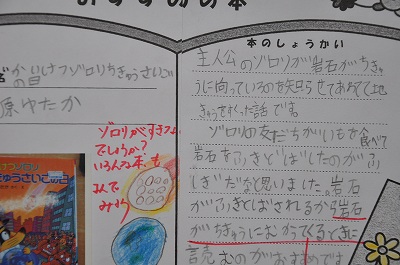 おすすめの本
かいけつゾロリちきゅうさいご
の日
原ゆたか
ゾロリがすきなん
でしょうか?
いろんな本も
よんで
みよう
本のしょうかい
主人公のゾロリが岩石がちき
うに向っているのを知らせてあわてて地
きゅうをすくった話です。
ゾロリの友だちがいもを食べて
岩石をふきとばしたのがふ
しぎだなと思いました。岩石
がふきとばされるから岩石
がちきゅうにむかってくるときに
読むのがおすすめです